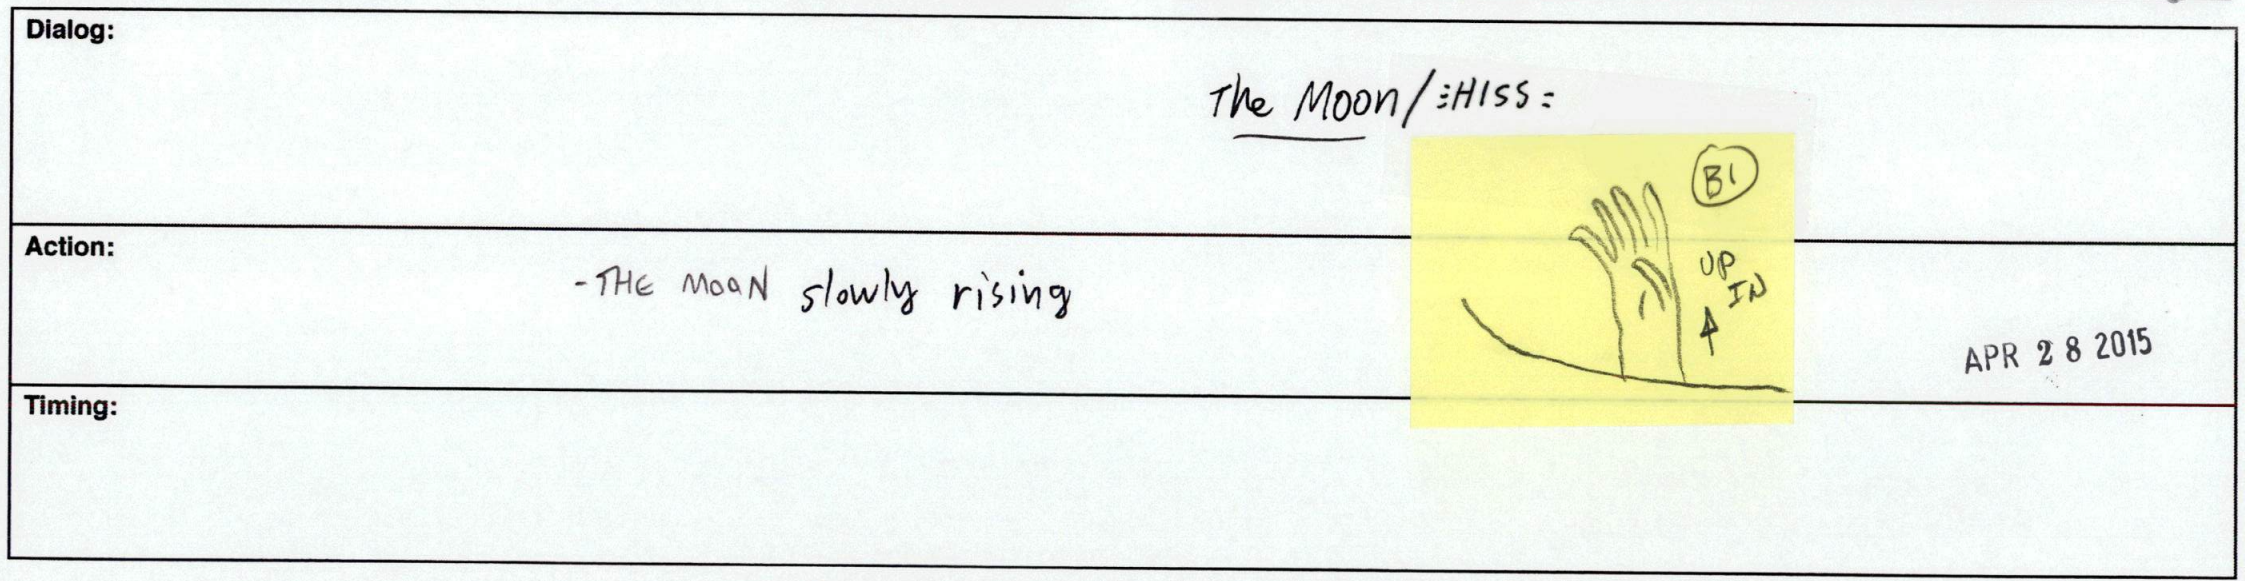 Dialog:
The Moon/ :HISS:
B1
Action:
-THE MOON slowly rising
UP
IN
APR 28 2015
Timing: